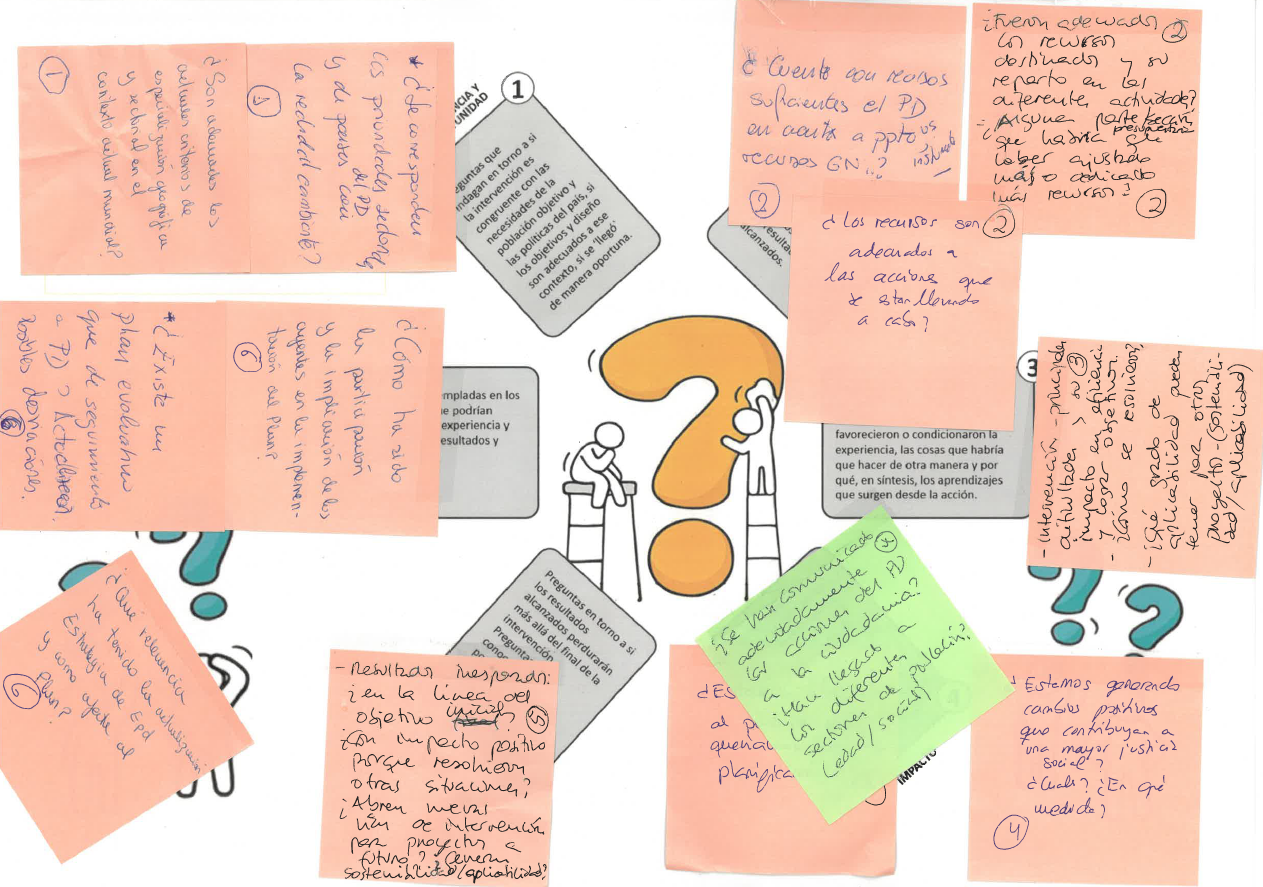 ¿Son adecuados los
actuales criterios de
especialización geográfica
y sectorial en el
contexto actual mundial?
1
* ¿Se corresponden
las prioridades sectoriales
del PD
y de países con
la realidad cambiante?
1
NCIA Y
UNIDAD
1
eguntas que
ndagan en torno a si
la intervención es
congruente con las
necesidades de la
población objetivo y
las políticas del país, si
los objetivos y diseño
son adecuados a ese
contexto, si se "llegó"
de manera oportuna.
¿ Cuenta con recursos
suficientes el PD
en cuanto a pptos
recursos GN...?
2
¿Fueron adecuados
2
los recursos
destinados y su
reparto en las
diferentes actividades?
¿Alguna partida
presupuestaria
que habría que
haber ajustado
más o dedicado
más recursos?
2
resulta
alcanzados.
¿Los recursos son
2
adecuados a
las acciones que
se están llevando
a cabo?
* ¿Existe un
plan evaluativo
que dé seguimiento
a PD
posibles desviaciones.
6
¿Cómo ha sido
la participación
y la implicación de los
agentes en la implemen-
tación del Plan?
6
mpladas en los
ue podrían
experiencia y
esultados y
3
favorecieron o condicionaron la
experiencia, las cosas que habría
que hacer de otra manera y por
qué, en síntesis, los aprendizajes
que surgen desde la acción.
- Intervención - principales
actividades y su
3
impacto en eficiencia
y lograr objetivos.
- ¿Cómo se resolvieron?
- ¿Qué grado de
aplicabilidad puede
tener para otros
proyectos. (sostenibili-
dad/aplicabilidad)
¿Qué relevancia
ha tenido la actualización
Estrategia de EpD
y como afecta al
Plan?
6
Preguntas en torno a si
los resultados
alcanzados perdurarán
más allá del final de la
intervención
Pregunta
cono
- Resultados inesperados:
¿en la línea del
objetivo inicial?
5
¿Con impacto positivo
porque resolvieron
otras situaciones?
¿Abren nuevas
vías de intervención
para proyectos a
futuro? ¿Generan
sostenibilidad/aplicabilidad?
¿ES
al p
planifica
¿Se han comunicado
4
adecuadamente
las acciones del PD
a la ciudadanía?
¿Han llegado a
los diferentes
sectores de población?
(edad/social)
IMPACTO
¿Estamos generando
cambios positivos
que contribuyan a
una mayor justicia
social?
¿Cuáles? ¿En qué
medida?
4